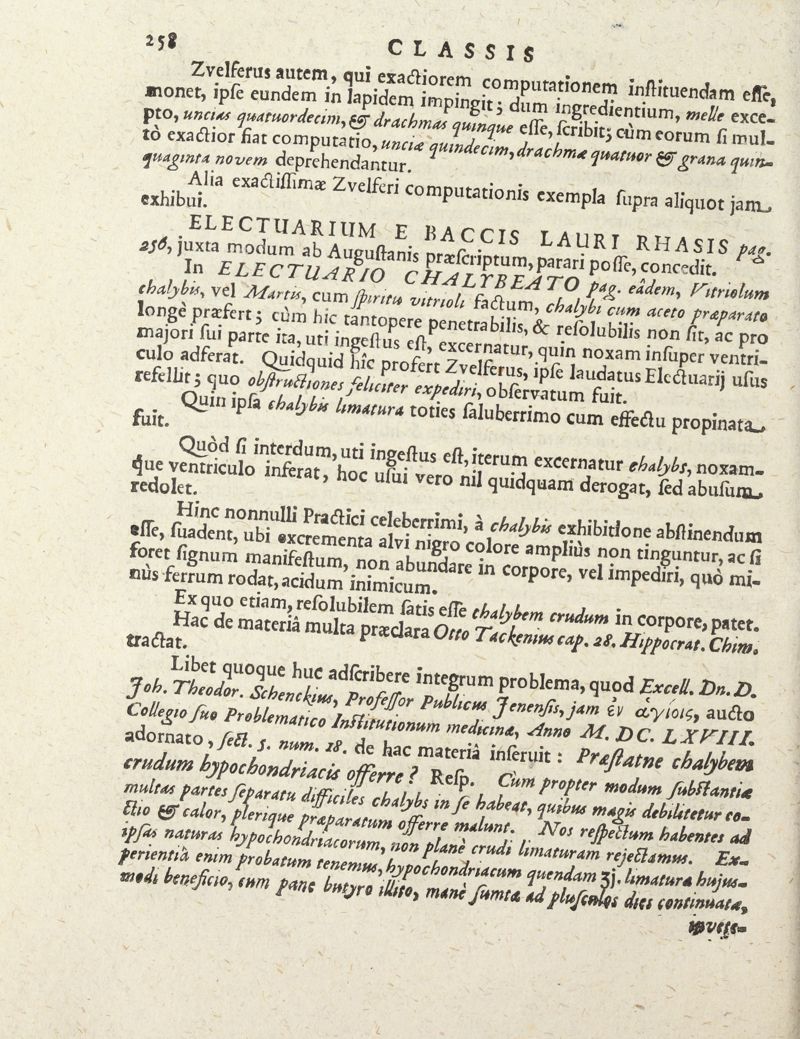 258
CLASSIS
Zvelferus autem, qui exactiorem computationem instituendam esse,
monet, ipse eundem in lapidem impingit; dum ingredientium, melle exce-
pto, uncias quatuordecim, & drachmas quinque esse, scribit; cùm eorum si mul-
tò exactior fiat computatio, unciæ quindecim, drachmæ quatuor & grana quin-
quaginta novem deprehendantur.
Alia exactissimæ Zvelferi computationis exempla supra aliquot jam
exhibui.
ELECTUARIUM E BACCIS LAURI RHASIS pag.
256, juxta modum ab Augustanis præscriptum, parari posse, concedit.
In ELECTUARIO CHALYBEATO pag. eâdem, Vitriolum
chalybis, vel Martis, cum spiritu vitrioli factum, chalybi cum aceto præparato
longè præfert; cùm hic tantopere penetrabilis, & resolubilis non sit, ac pro
majori sui parte ita, uti ingestus est, excernatur, quin noxam insuper ventri-
culo adferat. Quidquid hîc profert Zvelferus, ipse laudatus Electuarij usus
refellit; quo obstructiones feliciter expediri, observatum fuit.
Quin ipsa chalybis limatura toties saluberrimo cum effectu propinata
fuit.
Quòd si interdum, uti ingestus est, iterum excernatur chalybs, noxam-
que ventriculo inferat, hoc usui vero nil quidquam derogat, sed abusum
redolet.
Hinc nonnulli Practici celeberrimi, à chalybis exhibitione abstinendum
esse, suadent, ubi excrementa alvi nigro colore ampliùs non tinguntur, ac si
foret signum manifestum, non abundare in corpore, vel impediri, quò mi-
nùs ferrum rodat, acidum inimicum.
Ex quo etiam, resolubilem satis esse chalybem crudum in corpore, patet.
Hac de materiâ multa præclara Otto Tackenius cap. 28. Hippocrat. Chim.
tractat.
Libet quoque huc adscribere integrum problema, quod Excell. Dn. D.
Joh. Theodor. Schenckius, Professor Publicus Jenensis, jam ἐν ἁγίοις, aucto
Collegio suo Problematico Institutionum medicinæ, Anno M. DC. LXVIII.
adornato, sect. 5. num. 28. de hac materiâ inseruit: Præstatne chalybem
crudum hypochondriacis offerre? Resp. Cum propter modum substantiæ
multas partes separatu difficiles chalybs in se habeat, quibus magis debilitetur co-
ctio & calor, plerique præparatum offerre malunt. Nos respectum habentes ad
ipsas naturas hypochondriacorum, non planè crudi limaturam rejectamus. Ex-
perientiâ enim probatum tenemus, hypochondriacum quendam ʒj. limatura hujus-
modi beneficio, cum pane butyro illito, manè sumta ad plusculos dies continuata,